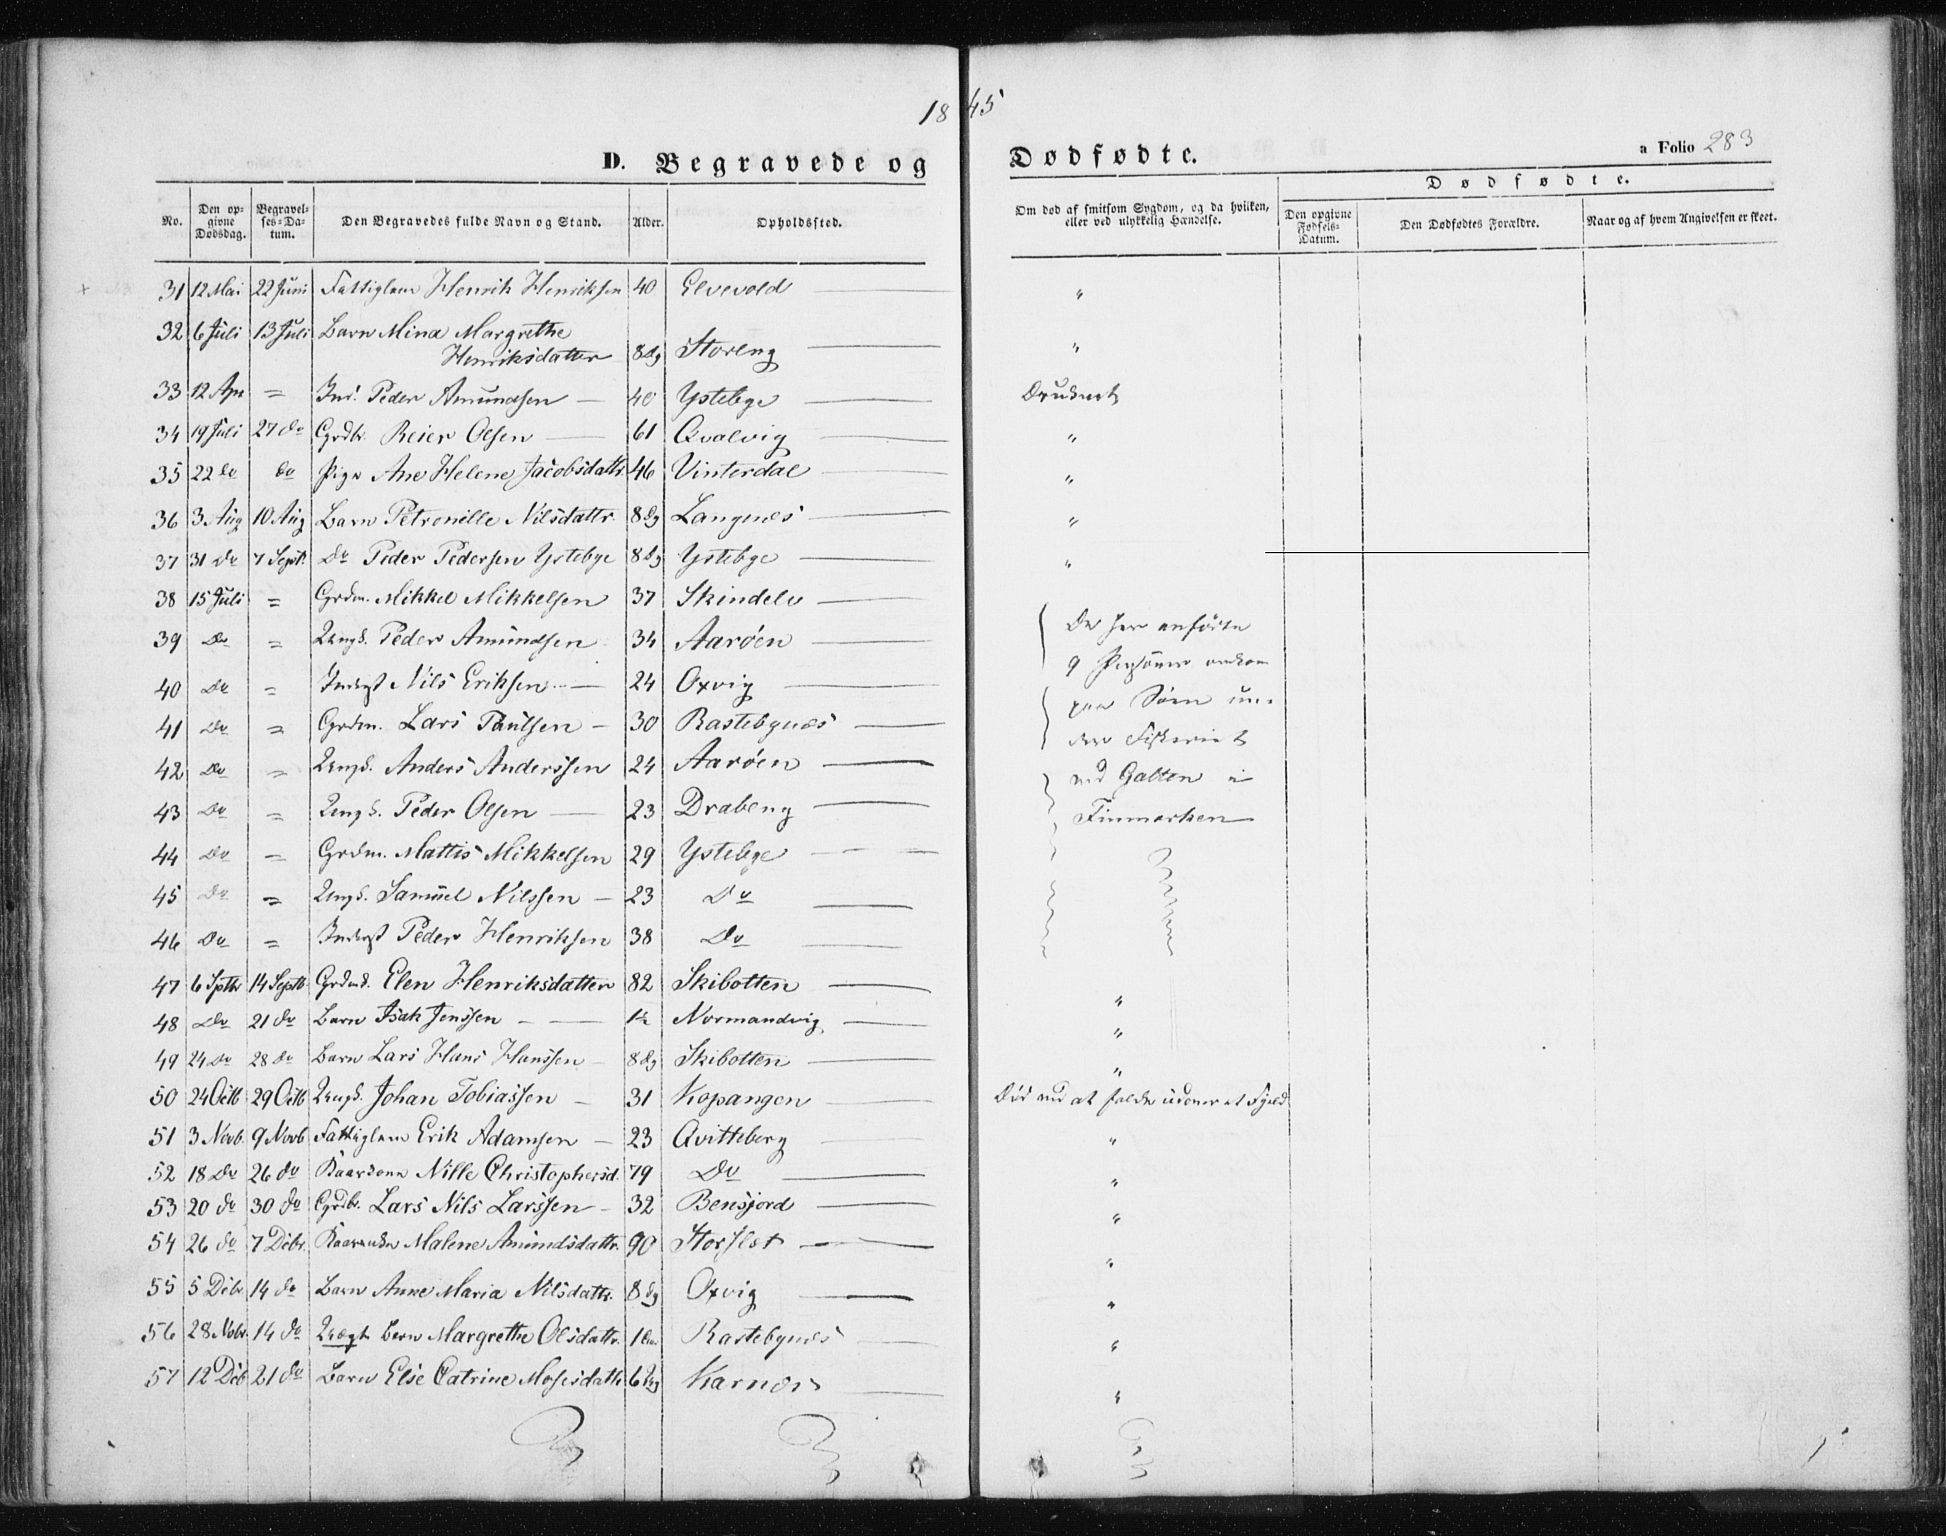 1845
D. Begravede og Dødfødte.
a Folio 283
Dødfødte.
No. | Den opgivne Dødsdag. | Begravelses-Datum. | Den Begravedes fulde Navn og Stand. | Alder. | Opholdssted. | Om død af smitsom Sygdom, og da hvilken, eller ved ulykkelig Hændelse. | Den opgivne Fødsels-Datum. | Den Dødfødtes Forældre. | Naar og af hvem Angivelsen er skeet.
31 12 Mai 22 Juni Fattiglem Henrik Henriksen 40 Elvevold "
32 6 Juli 13 Juli Barn Mina Margrethe
Henriksdatter 8 Dg Storeng "
33 12 Apr = Ind. Peder Amundsen 40 Ystebye Druknet
34 19 Juli 27 do Grdbr. Reier Olsen 61 Qvalvig "
35 22 do do Pige Ane Helene Jacobsdattr 46 Vinterdal "
36 3 Aug 10 Aug Barn Petronille Nilsdattr. 8 Dg Langnæs "
37 31 do 7 Sept. Do Peder Pedersen Ystebye 8 Dg Ystebye "
38 15 Juli = Grdm. Mikkel Mikkelsen 37 Skindelv
39 Do = Ungk. Peder Amundsen 34 Aarøen De her anførte
40 Do = Inderst Nils Eriksen 24 Oxvig 9 Personer omkom
41 Do = Grdm. Lars Paulsen 30 Rastebynæs paa Søen un-
42 Do = Ungk. Anders Anderssen 24 Aarøen der Fiskeriet
43 Do = Ungk. Peder Olsen 23 Drabeng ved Galten i
44 Do = Grdm. Mattis Mikkelsen 29 Ystebye Finmarken
45 Do = Ungk. Samuel Nilssen 23 Do
46 Do = Inderst Peder Henriksen 38 Do
47 6 Septbr 14 Septb Elen Henriksdatter 82 Skibotten "
48 Do 21 do Barn Isak Jenssen 1½ Normandvig "
49 24 Do 28 do Barn Lars Hans Hanssen 8 Dg Skibotten "
50 24 Octb 29 Octb Ungk. Johan Tobiassen 31 Kopangen Død ved at falde udover et Fjeld
51 3 Novb. 9 Novb Fattiglem Erik Adamsen 23 Qvitteberg "
52 18 Do 26 do Kaarkone Nille Christophersd. 79 Do "
53 20 do 30 do Grdbr. Lars Nils Larssen 32 Bensjord "
54 26 do 7 Debr. Kaarenke Malene Amundsdattr. 90 Storslet "
55 5 Debr 14 do Barn Anne Maria Nilsdattr. 8 Dg Oxvig "
56 28 Nobr. 14 do Uægt. Barn Margrethe Olsdattr. 1 Rastebynæs "
57 12 Deb 21 do Barn Else Catrine Mosesdattr 6 Karnæs "